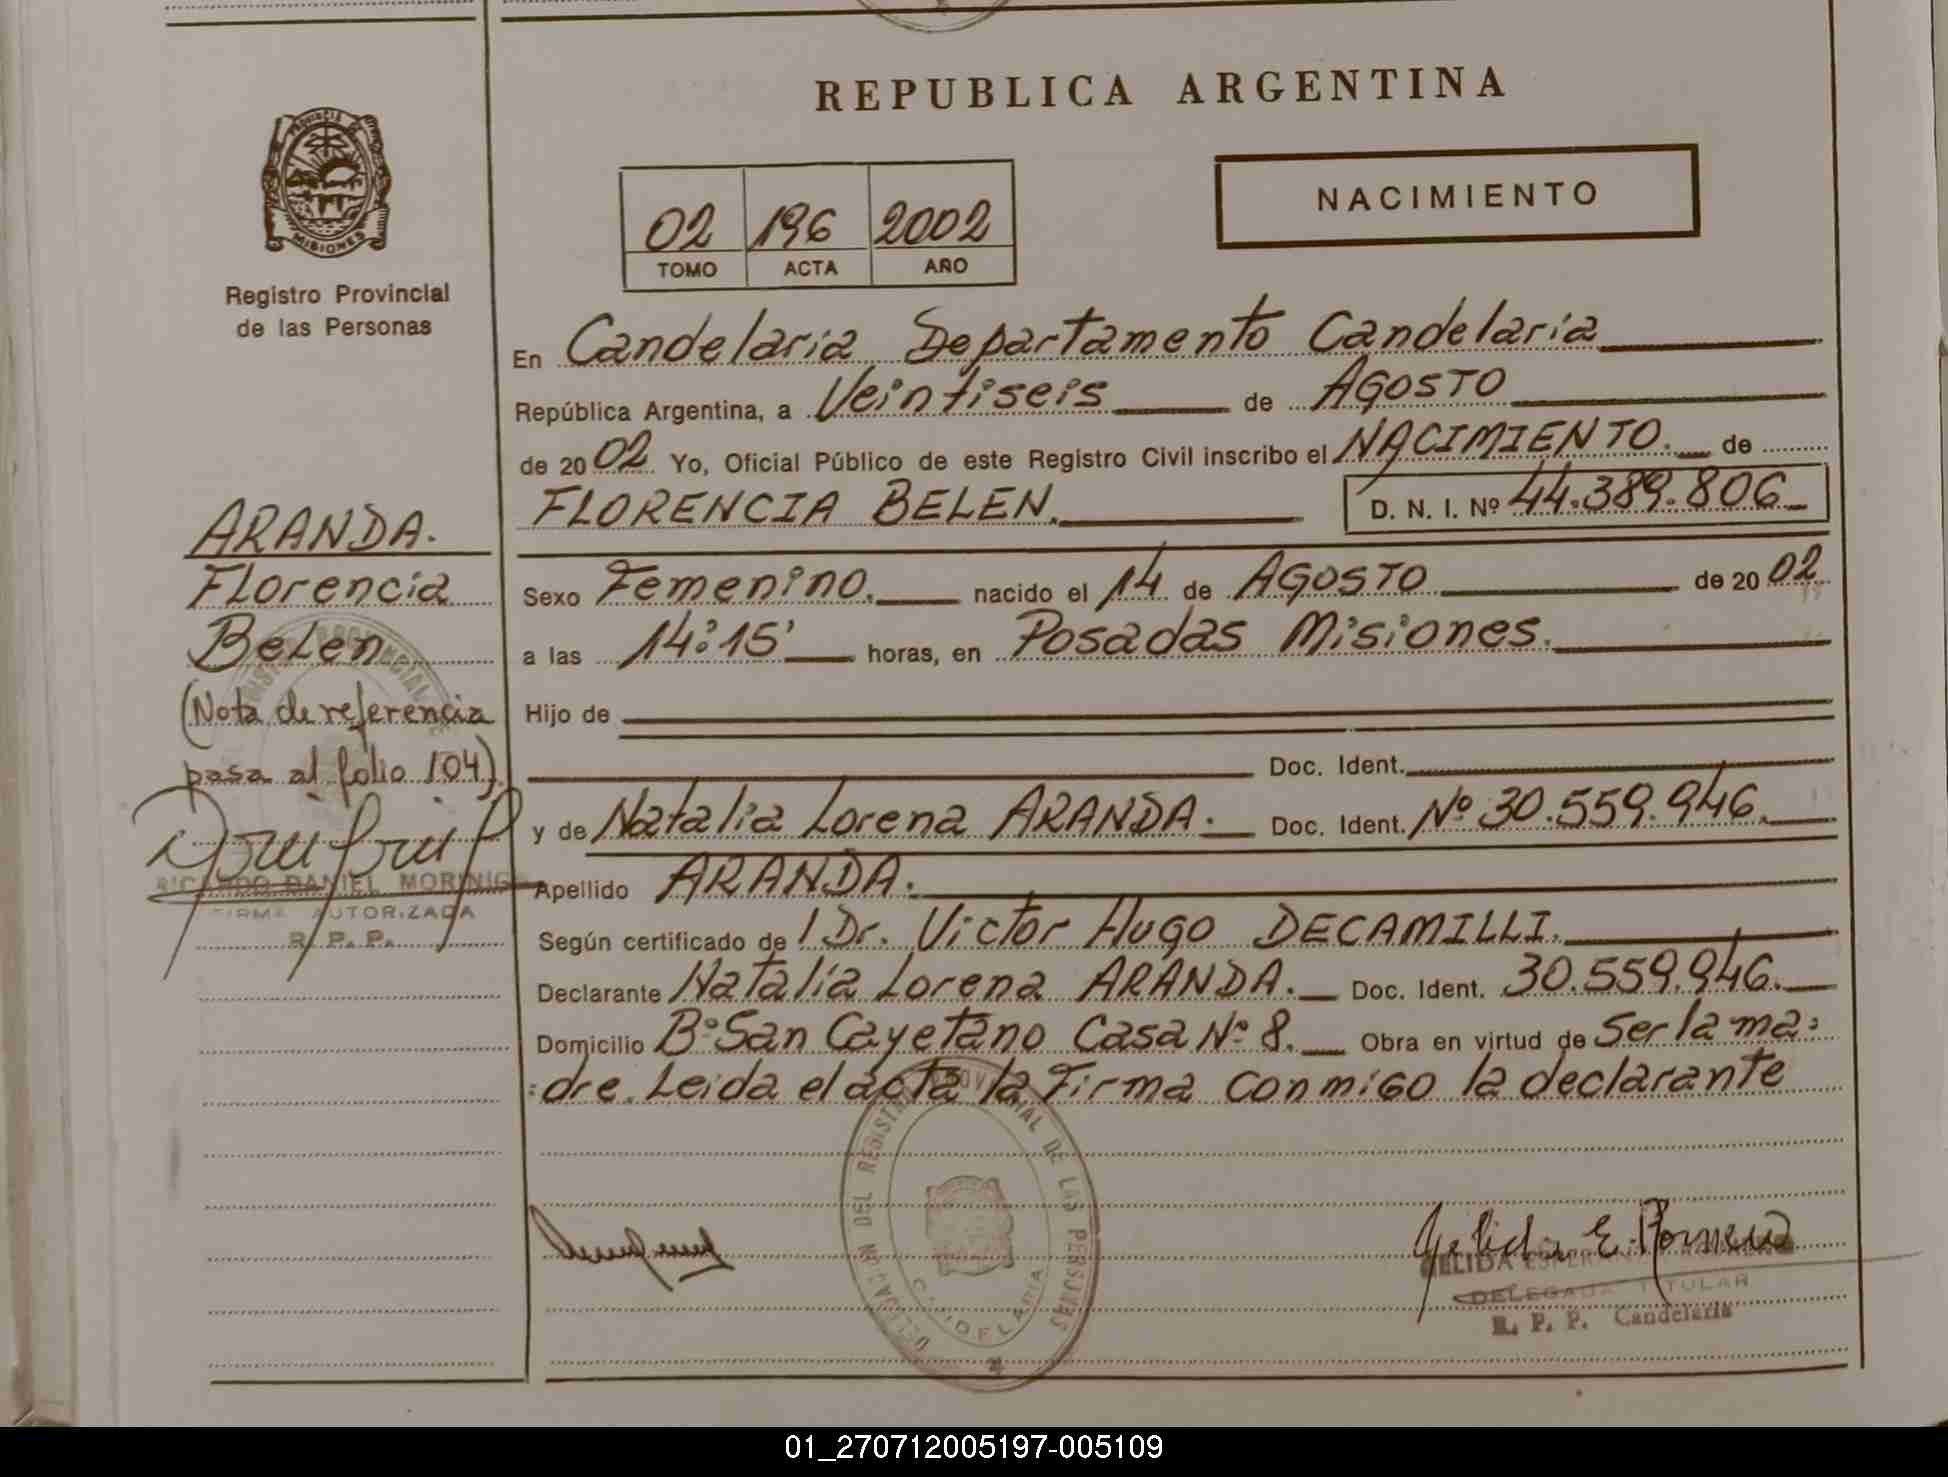 REPUBLICA ARGENTINA
NACIMIENTO
02 196 2002
TOMO ACTA AÑO
PROVINCIA DE
MISIONES
Registro Provincial
de las Personas
En Candelaria Departamento Candelaria
República Argentina, a Veintiseis de AGOSTO
de 2002 Yo, Oficial Público de este Registro Civil inscribo el NACIMIENTO. de
FLORENCIA BELEN. D. N. I. Nº 44.389.806
Sexo Femenino. nacido el 14 de AGOSTO de 2002
a las 14:15' horas, en Posadas Misiones.
Hijo de
Doc. Ident.
y de Natalia Lorena ARANDA. Doc. Ident. Nº 30.559.946.
Apellido ARANDA.
Según certificado de l Dr. Victor Hugo DECAMILLI.
Declarante Natalia Lorena ARANDA. Doc. Ident. 30.559.946.
Domicilio Bº San Cayetano Casa Nº 8. Obra en virtud de Ser la ma:
:dre. Leida el acta la Firma conmigo la declarante
ARANDA.
Florencia
Belen
(Nota de referencia
pasa al folio 104)
RICARDO DANIEL MORINIGO
FIRMA AUTORIZADA
R. P. P.
DELEGACION DEL REGISTRO PROVINCIAL DE LAS PERSONAS
CANDELARIA
Gelida E. Romero
GELIDA ESPERANZA
DELEGADA TITULAR
R. P. P. Candelaria
01_270712005197-005109